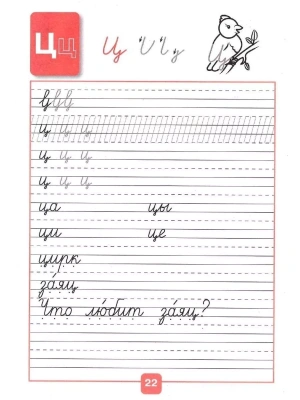 Цц Ц Ц ц Ц
Ц Ц Ц
ц ц ц
ц ц ц
ц ц ц
ца цы
ци це
цирк
за́яц
Что лю́бит за́яц?
22